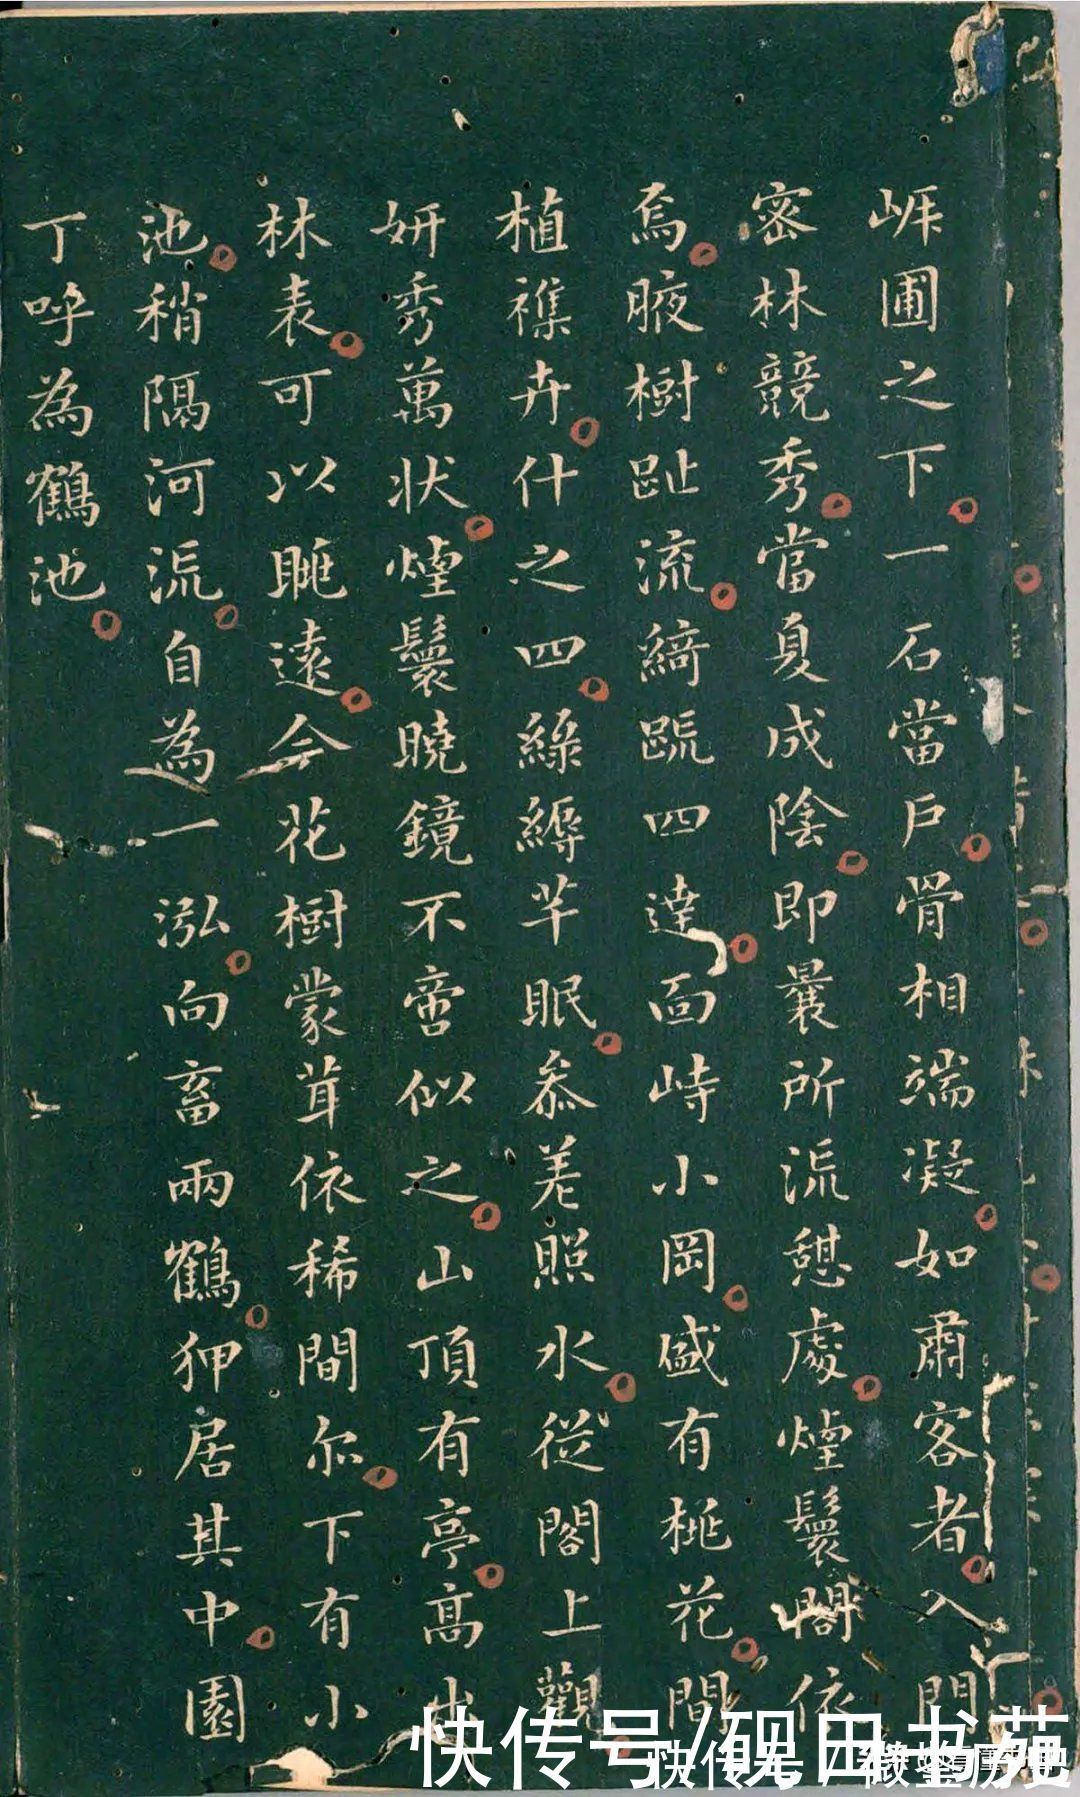 崕圃之下一石當戶骨相端凝如肅客者入門
密林競秀當夏成陰即曩所流憩處煙鬟閣依
焉腋樹趾流綺疏四達面峙小岡盛有桃花間
植襍卉什之四綠縟芊眠叅差照水從閣上觀
妍秀萬狀煙鬟曉鏡不啻似之山頂有亭高出
林表可以眺遠今花樹蒙茸依稀間尔下有小
池稍隔河流自為一泓向畜兩鶴狎居其中園
丁呼為鶴池
快传号/砚田书苑